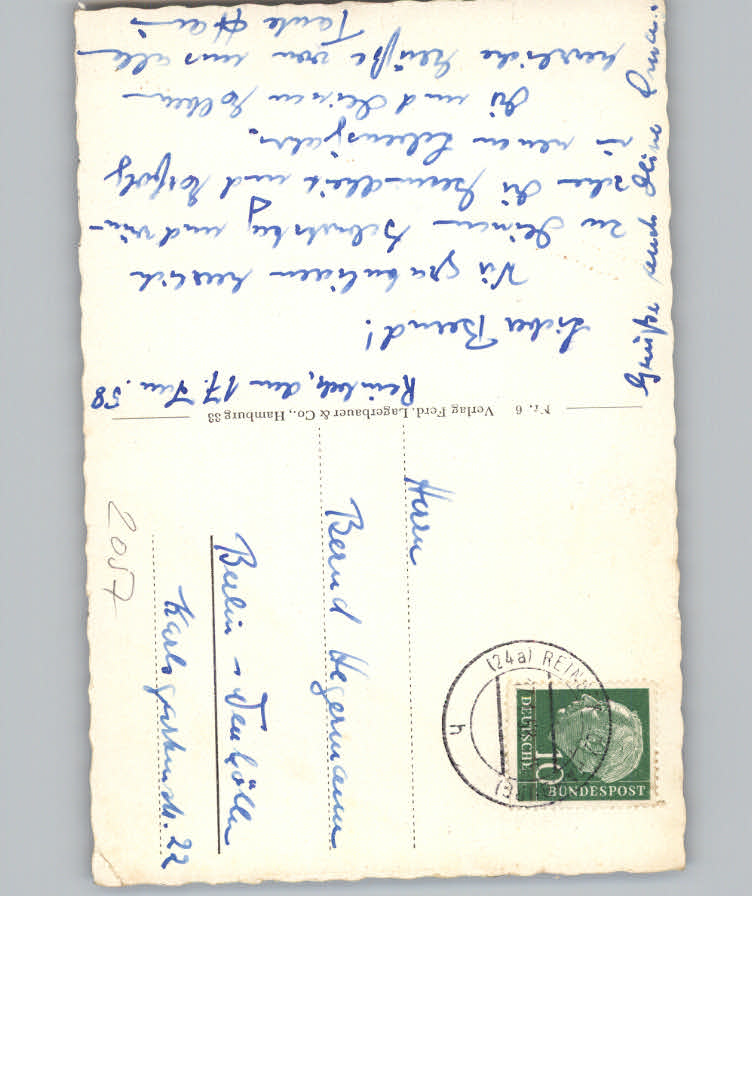 Reinbek, den 17. Jan. 58
Lieber Bernd!
Wir gratulieren herzlich
zu Deinem Geburtstag und wün-
schen Dir Gesundheit und Erfolg
im neuen Lebensjahr.
Dir und Deinen Eltern
herzliche Grüße von uns allen
Tante
Grüße auch Deine Oma.
Nr. 6 Verlag Ferd. Lagerbauer & Co., Hamburg 33
Herrn
Bernd Hegermann
Berlin - Neukölln
Karlsgartenstr. 22
2057
(24a) REINBEK
h
DEUTSCHE
10
BUNDESPOST